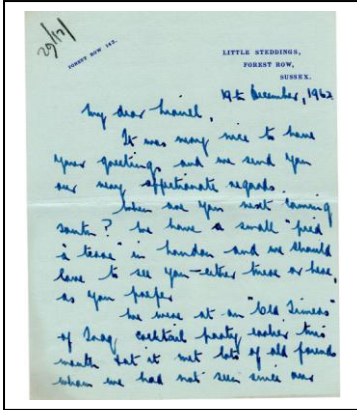 29/12/
FOREST ROW 143.
LITTLE STEDDINGS,
FOREST ROW,
SUSSEX.
19th December, 1962
My dear Lionel,
It was very nice to have
your greetings, and we send you
our very affectionate regards.
When are you next coming
south? We have a small "pied
à terre" in London and we should
love to see you – either there or here,
as you prefer
We were at an "Old Timers"
of Iraq cocktail party earlier this
month but it met lots of old friends
whom we had not seen since our